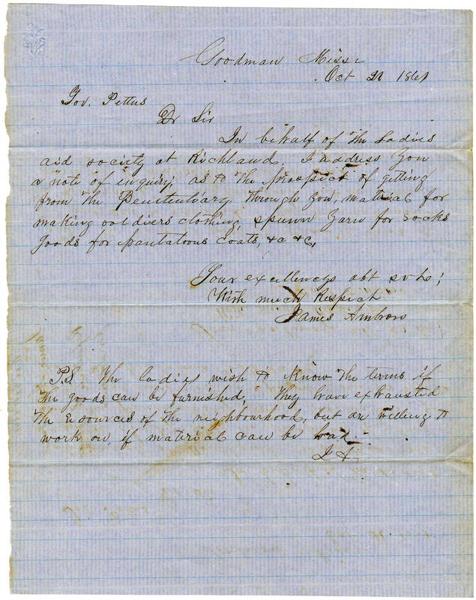 Goodman Miss
Oct 21 1861
Gov. Pettus
Dr Sir
In behalf of the Ladies
aid society at Richland. I address you
a note of inquiry as to the prospect of getting
from the Penitentiary, through you, material for
making soldiers clothing, spun yarn for socks
goods for pantatoons coats, &c &c,
Your excellencys obt svts;
With much Respect
James Ambrows
P.S The ladies wish to know the terms if
the goods can be furnished, They have exhausted
the resources of the neighbourhood, but are willing to
work on if material can be had
J A.